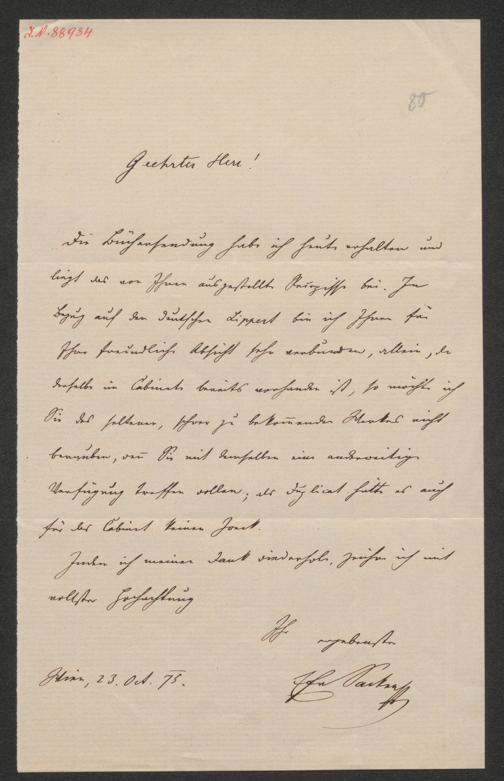 I.N. 88934
80
Geehrter Herr!
Die Büchersendung habe ich heute erhalten und
liegt das von Ihnen ausgestellte bei. In
Bezug auf den deutschen Lippert bin ich Ihnen für
Ihre freundliche Absicht sehr verbunden, allein, da
derselbe im Cabinete bereits vorhanden ist, so möchte ich
Sie des seltenen, schwer zu bekommenden Werkes nicht
berauben, wenn Sie mit demselben eine anderweitige
Verfügung treffen wollen; als Duplicat hätte es auch
für das Cabinet keinen Zweck.
Indem ich meinen Dank wiederhole, zeichne ich mit
vollster Hochachtung
Ihr ergebenster
Wien, 23. Oct. 75.
Sacken